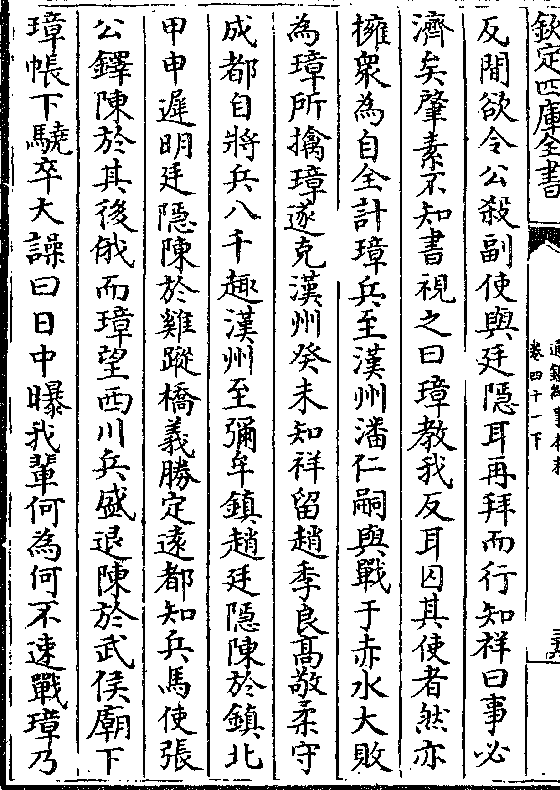 欽定四庫全書
卷四十一下
反間欲令公殺副使與廷隱耳再拜而行知祥曰事必
濟矣肇素不知書視之曰璋教我反耳囚其使者然亦
擁衆為自全計璋兵至漢州潘仁嗣與戰于赤水大敗
為璋所擒璋遂克漢州癸未知祥留趙季良髙敬柔守
成都自將兵八千趣漢州至彌牟鎮趙廷隱陳於鎮北
甲申遲明廷隱陳於雞蹤橋義勝定遠都知兵馬使張
公鐸陳於其後俄而璋望西川兵盛退陳於武侯廟下
璋帳下驍卒大譟曰日中曝我輩何為何不速戰璋乃